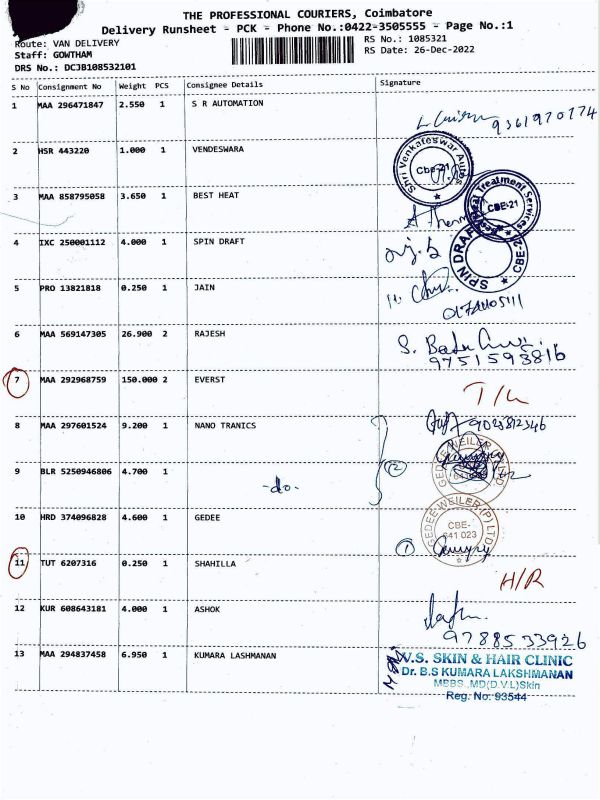 THE PROFESSIONAL COURIERS, Coimbatore
Delivery Runsheet - PCK - Phone No.:0422-3505555 - Page No.:1
Route: VAN DELIVERY
RS No.: 1085321
Staff: GOWTHAM
RS Date: 26-Dec-2022
DRS No.: DCJB108532101
S No Consignment No Weight PCS Consignee Details Signature
1 MAA 296471847 2.550 1 S R AUTOMATION
9361970774
2 HSR 443220 1.000 1 VENDESWARA
Shri Venkateswar Auto
Cbe-21
3 MAA 858795058 3.650 1 BEST HEAT
Treatment Services
CBE-21
4 IXC 250001112 4.000 1 SPIN DRAFT
SPIN DRAFT
CBE-2
5 PRO 13821818 0.250 1 JAIN
6 MAA 569147305 26.900 2 RAJESH
9751593816
7 MAA 292968759 150.000 2 EVERST
T/L
8 MAA 297601524 9.200 1 NANO TRANICS
9 BLR 5250946806 4.700 1 -do-
2
GEDEE WEILER
10 HRD 374096828 4.600 1 GEDEE
GEDEE WEILER (P) LTD
CBE-
641 023
1
11 TUT 6207316 0.250 1 SHAHILLA
H/R
12 KUR 608643181 4.000 1 ASHOK
9788533926
13 MAA 294837458 6.950 1 KUMARA LASHMANAN
V.S. SKIN & HAIR CLINIC
Dr. B.S KUMARA LAKSHMANAN
MBBS.,MD(D.V.L)Skin
Reg. No. 93544